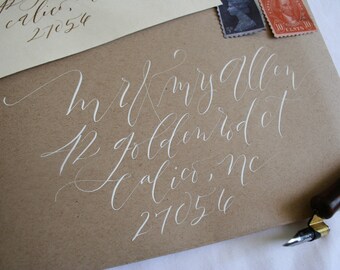 calico, nc
27054
10 CENTS 10
mr & mrs allen
12 goldenrod ct
calico, nc
27054